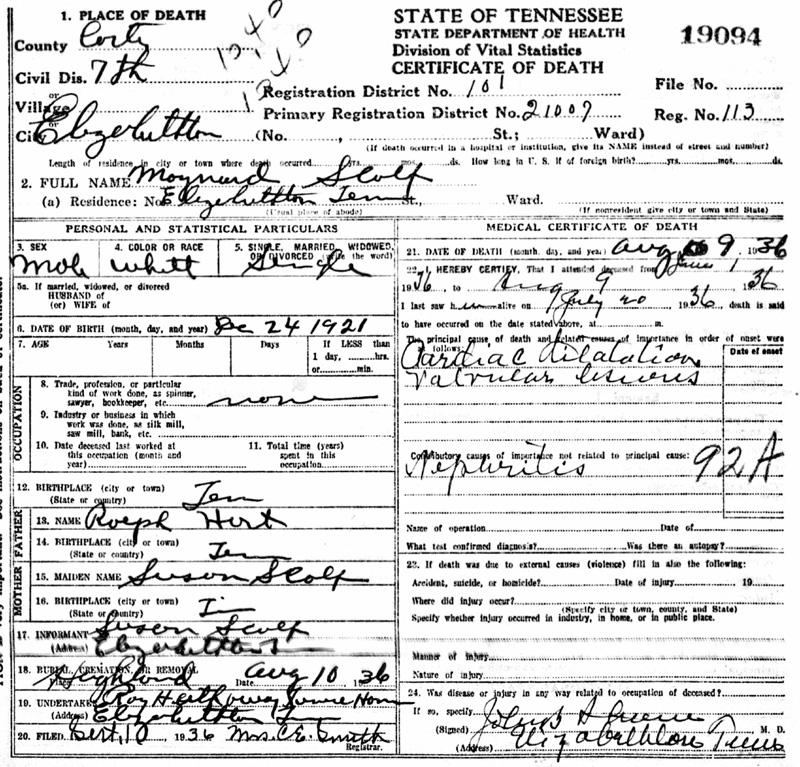 1. PLACE OF DEATH
County
Civil Dis. 7th
or
Village
or
City
STATE OF TENNESSEE
STATE DEPARTMENT OF HEALTH
Division of Vital Statistics
CERTIFICATE OF DEATH
19094
Registration District No. 101
File No.
Primary Registration District No. 21007
Reg. No. 113
(No. , St.; Ward)
(If death occurred in a hospital or institution, give its NAME instead of street and number)
Length of residence in city or town where death occurred yrs. mos. ds. How long in U. S. if of foreign birth? yrs. mos. ds.
2. FULL NAME Maynard Scalf
(a) Residence: No. Elizabethton Tenn St., Ward.
(Usual place of abode) (If nonresident give city or town and State)
PERSONAL AND STATISTICAL PARTICULARS
3. SEX 4. COLOR OR RACE 5. SINGLE, MARRIED, WIDOWED, OR DIVORCED (write the word)
Male White Single
5a. If married, widowed, or divorced
HUSBAND of
(or) WIFE of
6. DATE OF BIRTH (month, day, and year) Dec 24 1921
7. AGE Years Months Days If LESS than
1 day, hrs.
or min.
OCCUPATION
8. Trade, profession, or particular
kind of work done, as spinner,
sawyer, bookkeeper, etc. none
9. Industry or business in which
work was done, as silk mill,
saw mill, bank, etc.
10. Date deceased last worked at
this occupation (month and
year)
11. Total time (years)
spent in this
occupation
12. BIRTHPLACE (city or town)
(State or country) Tenn
FATHER
13. NAME Ralph Hart
14. BIRTHPLACE (city or town)
(State or country) Tenn
MOTHER
15. MAIDEN NAME Susan Scalf
16. BIRTHPLACE (city or town)
(State or country)
17. INFORMANT Susan Scalf
(Address)
18. BURIAL, CREMATION, OR REMOVAL
Place Highland Date Aug 10 1936
19. UNDERTAKER Roy Hathaway
(Address) Elizabethton Tenn
20. FILED Sept. 10 1936 Mrs. C. E. Smith
Registrar.
MEDICAL CERTIFICATE OF DEATH
21. DATE OF DEATH (month, day, and year) Aug 9, 1936
22. I HEREBY CERTIFY, That I attended deceased from
1936 to Aug 9 1936
I last saw him alive on July 20 1936, death is said
to have occurred on the date stated above, at m.
The principal cause of death and related causes of importance in order of onset were
follows:
Date of onset
Cardiac Dilatation
Valvular lesions
Contributory causes of importance not related to principal cause:
Nephritis 92A
Name of operation Date of
What test confirmed diagnosis? Was there an autopsy?
23. If death was due to external causes (violence) fill in also the following:
Accident, suicide, or homicide? Date of injury 19
Where did injury occur?
(Specify city or town, county, and State)
Specify whether injury occurred in industry, in home, or in public place.
Manner of injury
Nature of injury
24. Was disease or injury in any way related to occupation of deceased?
If so, specify
(Signed) M. D.
(Address) Elizabethton Tenn